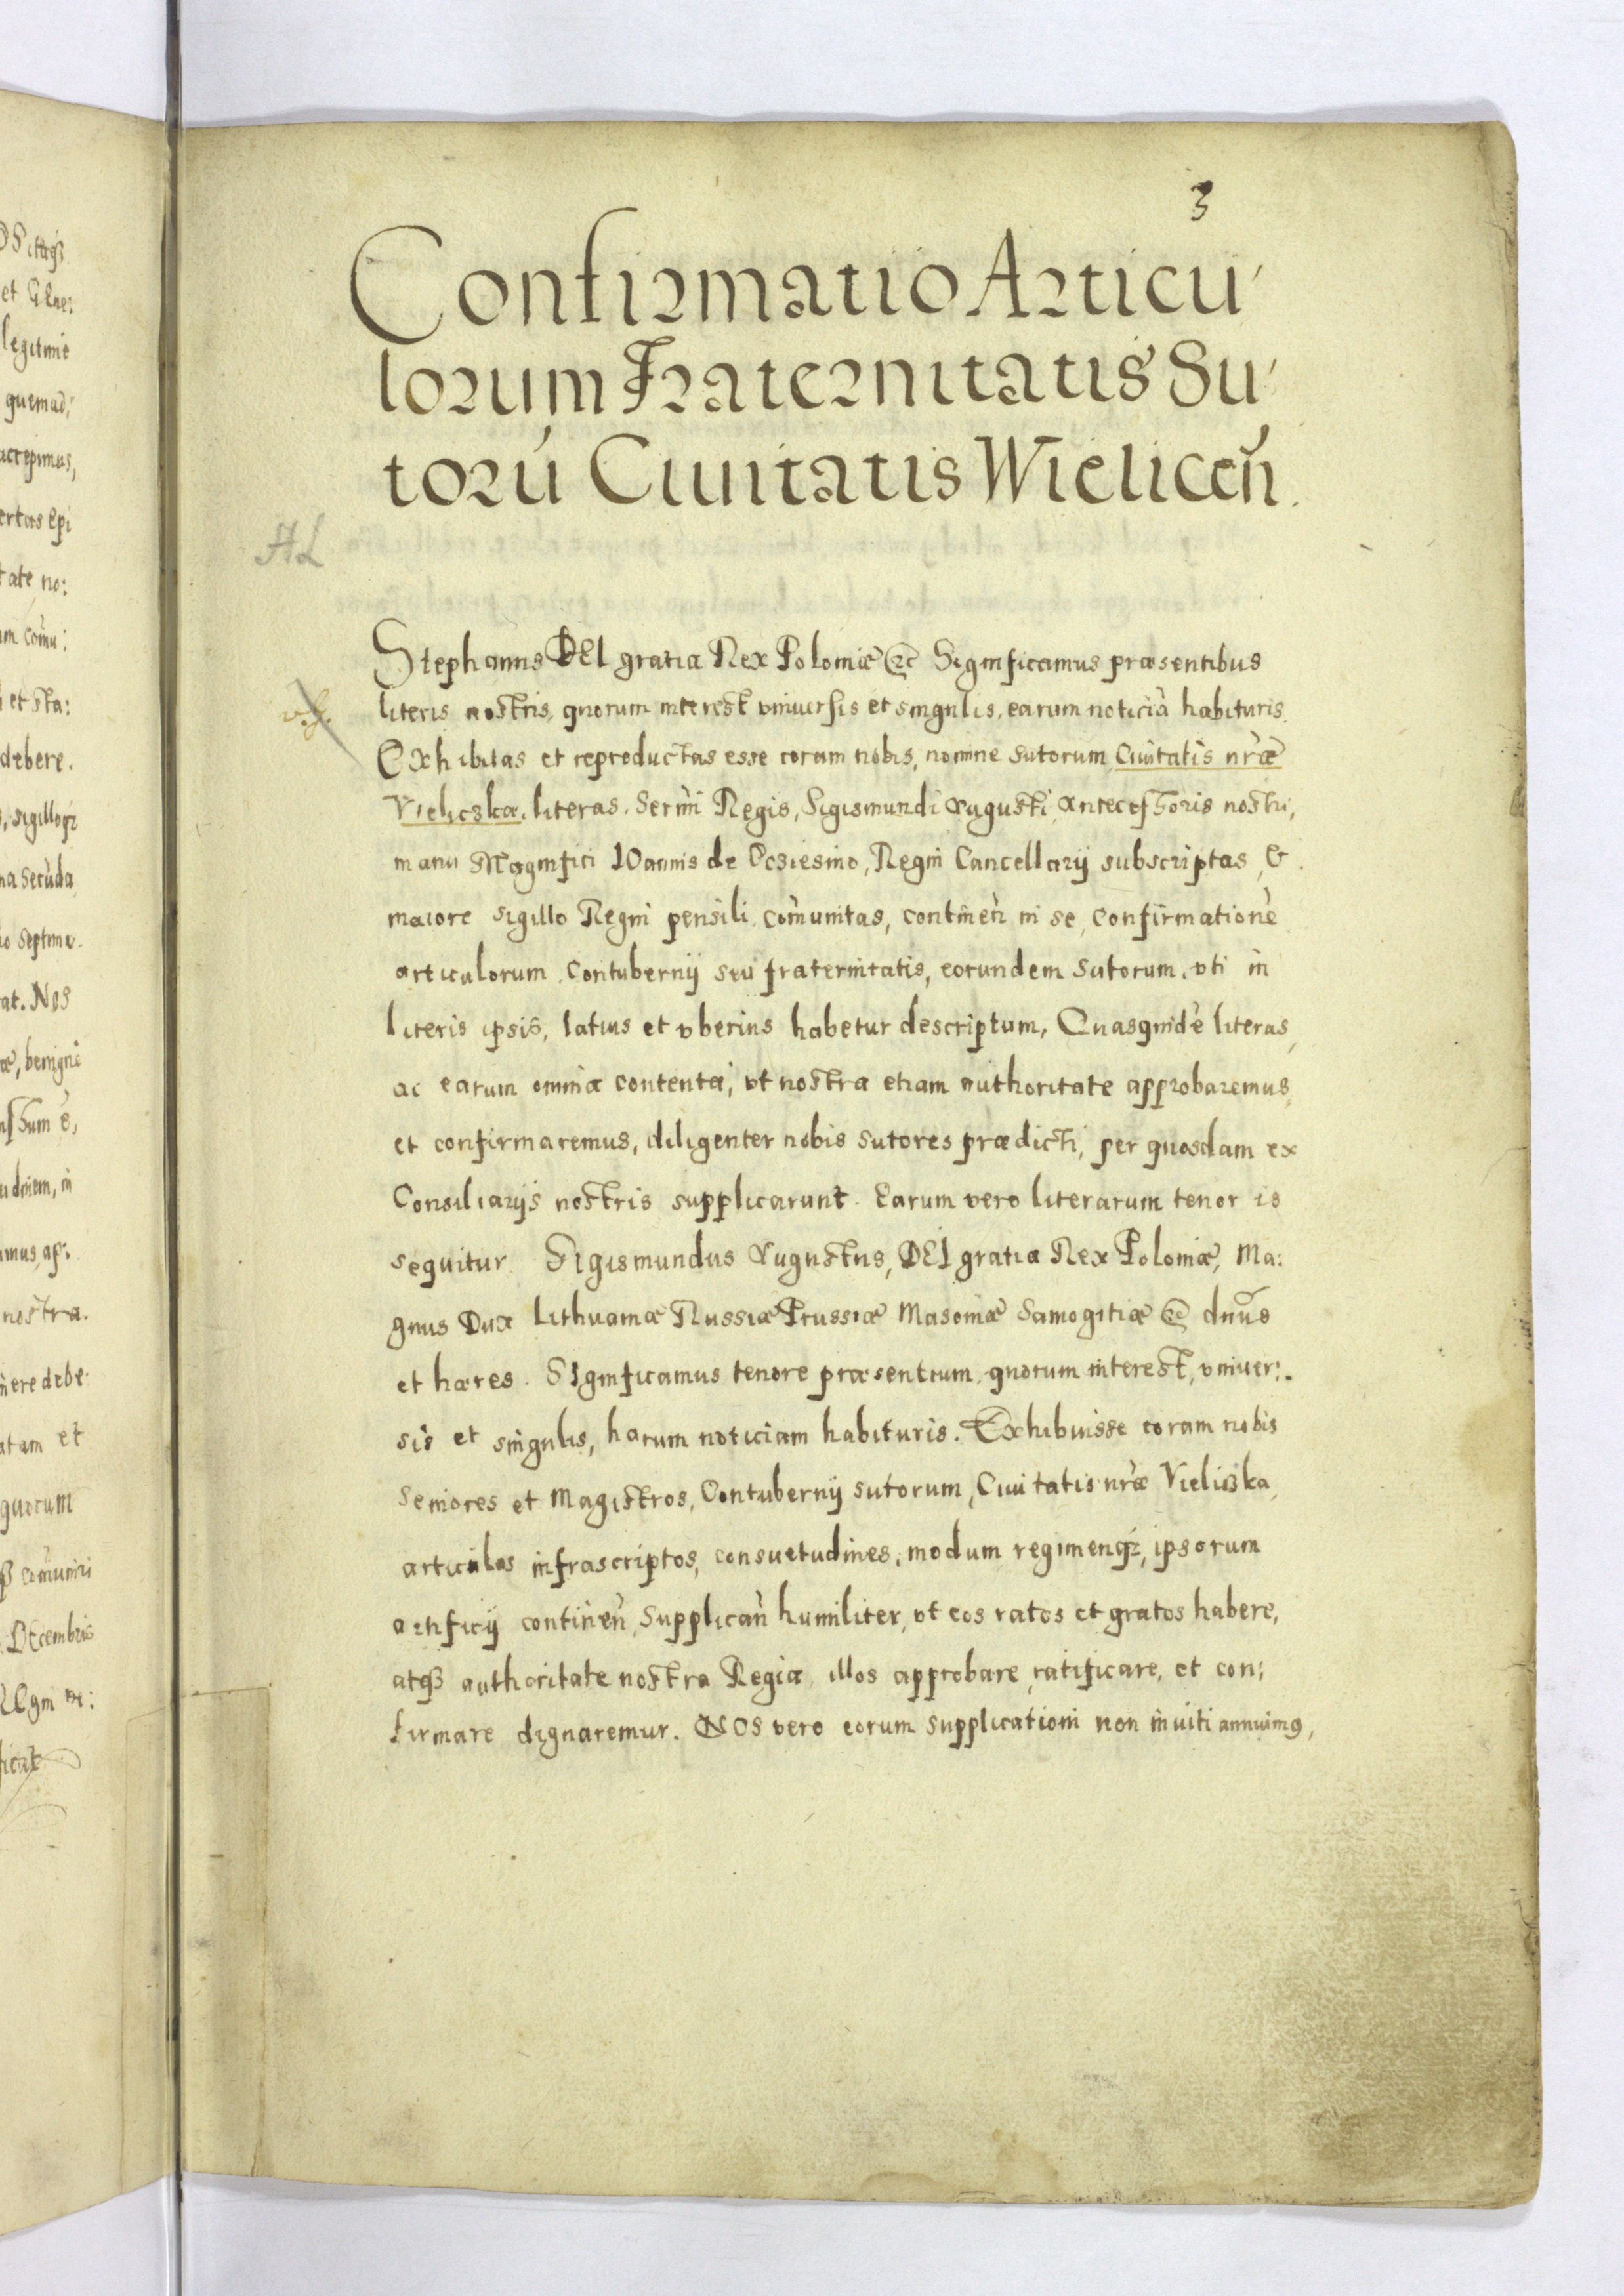 3
Confirmatio Articu
lorum Fraternitatis Su
torũ Ciuitatis Wielicen̄.
AL
Stephanus DEI gratia Rex Poloniæ &c Significamus præsentibus
literis nostris, quorum interest vniuersis et singulis, earum noticiã habituris.
Exhibitas et reproductas esse coram nobis, nomine sutorum Ciuitatis nr̃æ
Vielicska, literas. Serm̃i Regis, Sigismundi Augusti, Antecessoris nostri,
manu Magnifici IOannis de Ocsiesino, Regni Cancellarij subscriptas, &.
maiore sigillo Regni pensili com̃unitas, continen̄ in se, confirmationẽ
articulorum Contubernij seu fraternitatis, eorundem Sutorum, vti in
literis ipsis, latius et vberius habetur descriptum, Quasquidẽ literas,
ac earum omnia contenta, vt nostra etiam authoritate approbaremus,
et confirmaremus, diligenter nobis sutores prædicti, per quosdam ex
Consiliarijs nostris supplicarunt. Earum vero literarum tenor is
sequitur. Sigismundus Augustus, DEI gratia Rex Poloniæ, Ma:
gnus Dux Lithuaniæ Russiæ Prussiæ Masoniæ Samogitiæ &c dnũs
et hæres. SIgnificamus tenore præsentium, quorum interest, vniuer:.
sis et singulis, harum noticiam habituris. Exhibuisse coram nobis
Seniores et Magistros, Contubernij sutorum, Ciuitatis nr̃æ Vieliska,
articulos infrascriptos, consuetudines, modum regimenq₃, ipsorum
artificij continen̄, Supplican̄ humiliter, vt eos ratos et gratos habere,
atq₃ authoritate nostra Regia, illos approbare, ratificare, et con:
firmare dignaremur. NOS vero eorum supplicationi non inuiti annuimꝰ,